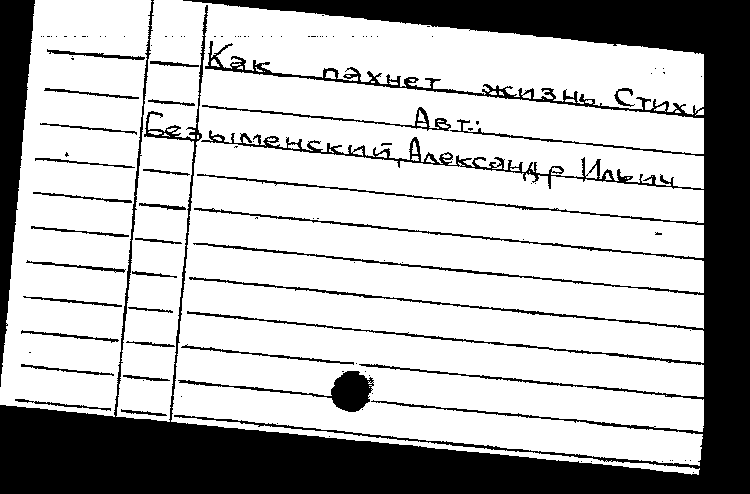 Как пахнет жизнь. Стихи
Авт.:
Безыменский, Александр Ильич